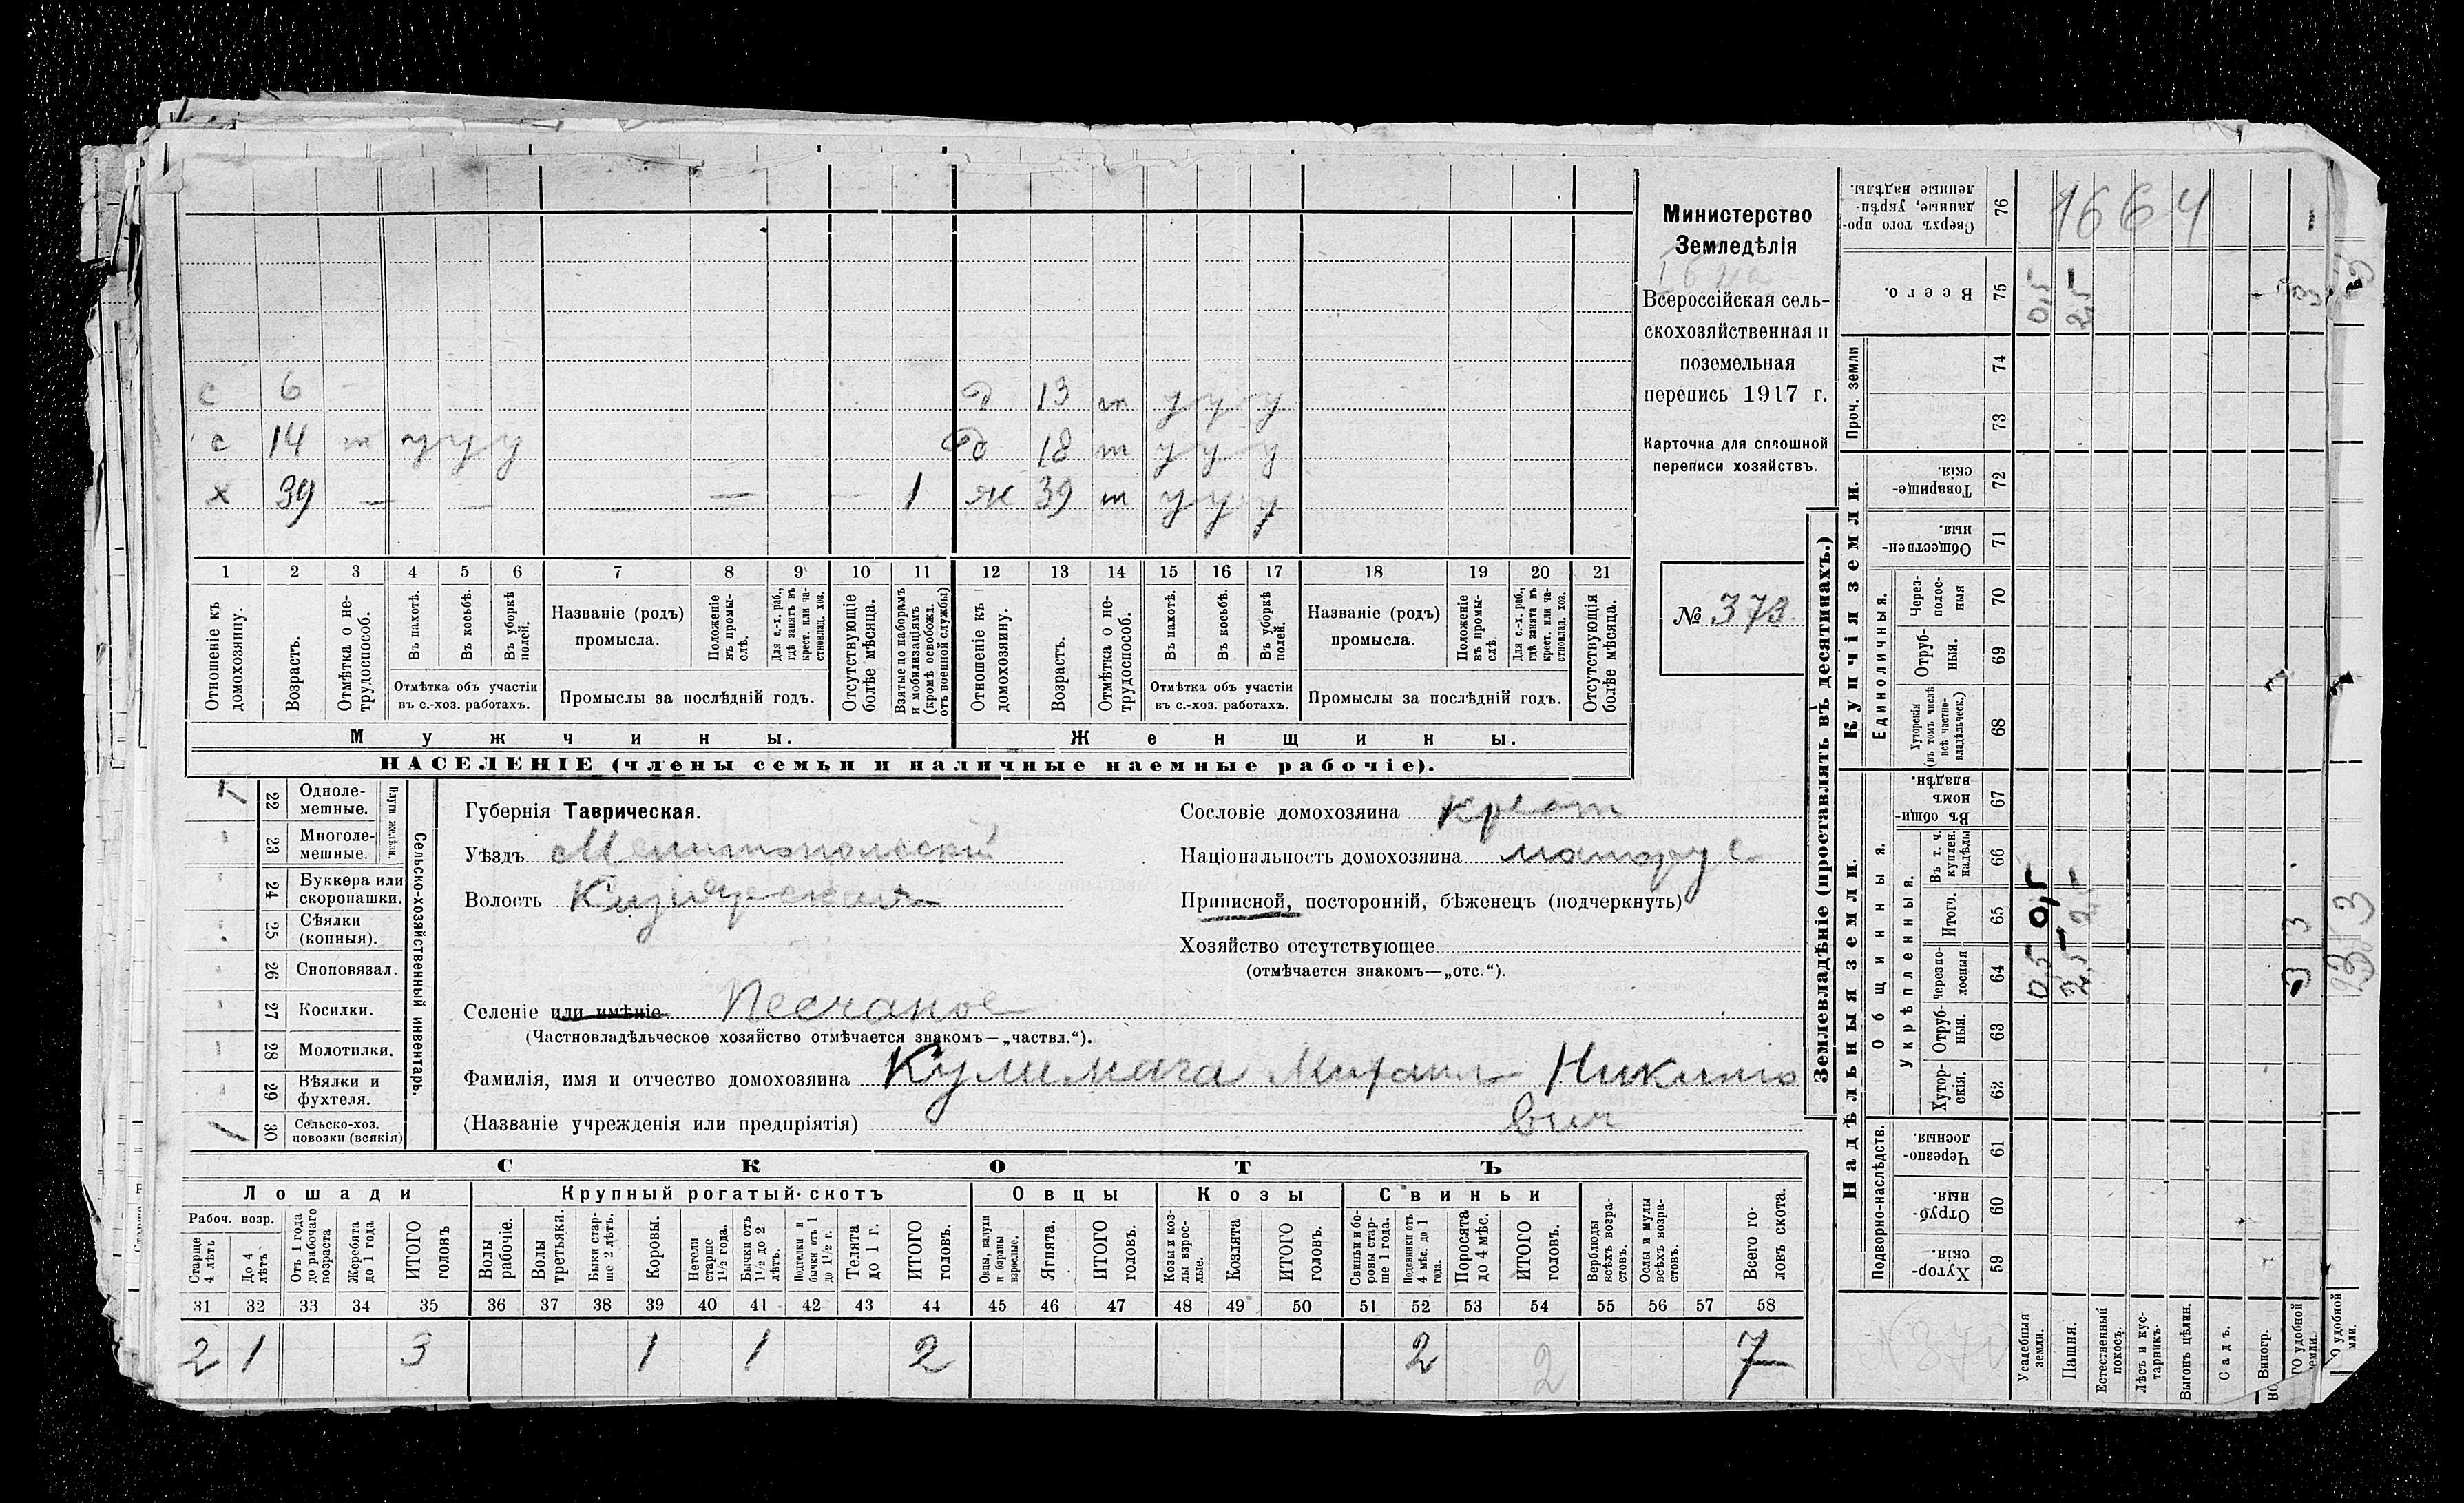 с 6 д 13 т у у у
с 14 т у у у д 18 т у у у
х 39 — — — — — 1 ж 39 т у у у
1 2 3 4 5 6 7 8 9 10 11 12 13 14 15 16 17 18 19 20 21
Отношеніе къ домохозяину.
Возрастъ.
Отмѣтка о нетрудоспособ.
Въ пахотѣ.
Въ косьбѣ.
Въ уборкѣ полей.
Отмѣтка объ участіи въ с.-хоз. работахъ.
Названіе (родъ) промысла.
Положеніе въ промыслѣ.
Для с.-х. раб., гдѣ занятъ въ крест. или частновлад. хоз.
Промыслы за послѣдній годъ.
Отсутствующіе болѣе мѣсяца.
Взятые по наборамъ и мобилизаціямъ (кромѣ освобожд. отъ военной службы)
Отношеніе къ домохозяину.
Возрастъ.
Отмѣтка о нетрудоспособ.
Въ пахотѣ.
Въ косьбѣ.
Въ уборкѣ полей.
Отмѣтка объ участіи въ с.-хоз. работахъ.
Названіе (родъ) промысла.
Положеніе въ промыслѣ
Для с.-х. раб., гдѣ занята въ крест. или частновлад. хоз.
Промыслы за послѣдній годъ.
Отсутствующія болѣе мѣсяца.
Мужчины. Женщины.
НАСЕЛЕНІЕ (члены семьи и наличные наемные рабочіе).
Министерство
Земледѣлія
Всероссійская сель-
скохозяйственная и
поземельная
перепись 1917 г.
Карточка для сплошной
переписи хозяйствъ.
№ 373
1 22 Однолемешные.
23 Многолемешные.
Плуги желѣзн.
24 Буккера или скоропашки.
25 Сѣялки (конныя).
26 Сноповязал.
27 Косилки.
28 Молотилки.
29 Вѣялки и фухтеля.
1 30 Сельско-хоз. повозки (всякія)
Сельско-хозяйственный инвентарь.
Губернія Таврическая.
Уѣздъ Мелитопольскій
Волость
Селеніе или имѣніе Песчаное
(Частновладѣльческое хозяйство отмѣчается знакомъ—„частвл.“).
Фамилія, имя и отчество домохозяина Кулимага Михаил Никито
вич
(Названіе учрежденія или предпріятія)
Сословіе домохозяина крест
Національность домохозяина малорус
Приписной, посторонній, бѣженецъ (подчеркнуть)
Хозяйство отсутствующее
(отмѣчается знакомъ—„отс.“).
СКОТЪ
Лошади Крупный рогатый скотъ Овцы Козы Свиньи
Рабоч. возр.
Старше 4 лѣтъ
До 4 лѣтъ
Отъ 1 года до рабочаго возраста
Жеребята до 1 года
ИТОГО головъ
Волы рабочіе.
Волы третьяки.
Быки старше 2 лѣтъ.
Коровы.
Нетели старше 1 1/2 года.
Бычки отъ 1 1/2 до 2 лѣтъ.
Подтелки и бычки отъ 1 до 1 1/2 г.
Телята до 1 г.
ИТОГО головъ.
Овцы, валухи и бараны взрослые.
Ягнята.
ИТОГО головъ.
Козы и козлы взрослые.
Козлята
ИТОГО головъ.
Свиньи и боровы старше 1 года.
Подсвинки отъ 4 мѣс. до 1 года.
Поросята до 4 мѣс.
ИТОГО головъ.
Верблюды всѣхъ возрастовъ.
Ослы и мулы всѣхъ возрастовъ.
Всего головъ скота.
31 32 33 34 35 36 37 38 39 40 41 42 43 44 45 46 47 48 49 50 51 52 53 54 55 56 57 58
2 1 3 1 1 2 2 2 7
Землевладѣніе (проставлять въ десятинахъ.)
Купчія земли.
Надѣльныя земли.
Единоличныя.
Общинныя.
Укрѣпленныя.
Подворно-наслѣдств.
Проч. земли
Сверхъ того проданные, укрѣпленные надѣлы. 76 1664
Всего. 75 0,5 2,5
74
73
Товарищескія. 72
Общественныя. 71
Черезполосныя 70
Отрубныя. 69
Хуторскія (въ томъ числѣ всѣ частновладѣльческ.) 68
Въ общинномъ владѣн. 67
Въ т. ч. куплен. надѣлы 66
Итого. 65 0,5 2,5
Черезполосныя 64 0,5 2,5 3
Отрубныя. 63
Хуторскія. 62
Черезполосныя. 61
Отрубныя. 60
Хуторскія. 59
Усадебныя земли.
Пашня.
Естественный покосъ.
Лѣсъ и кустарникъ.
Выгонъ цѣлин.
Садъ.
Виногр.